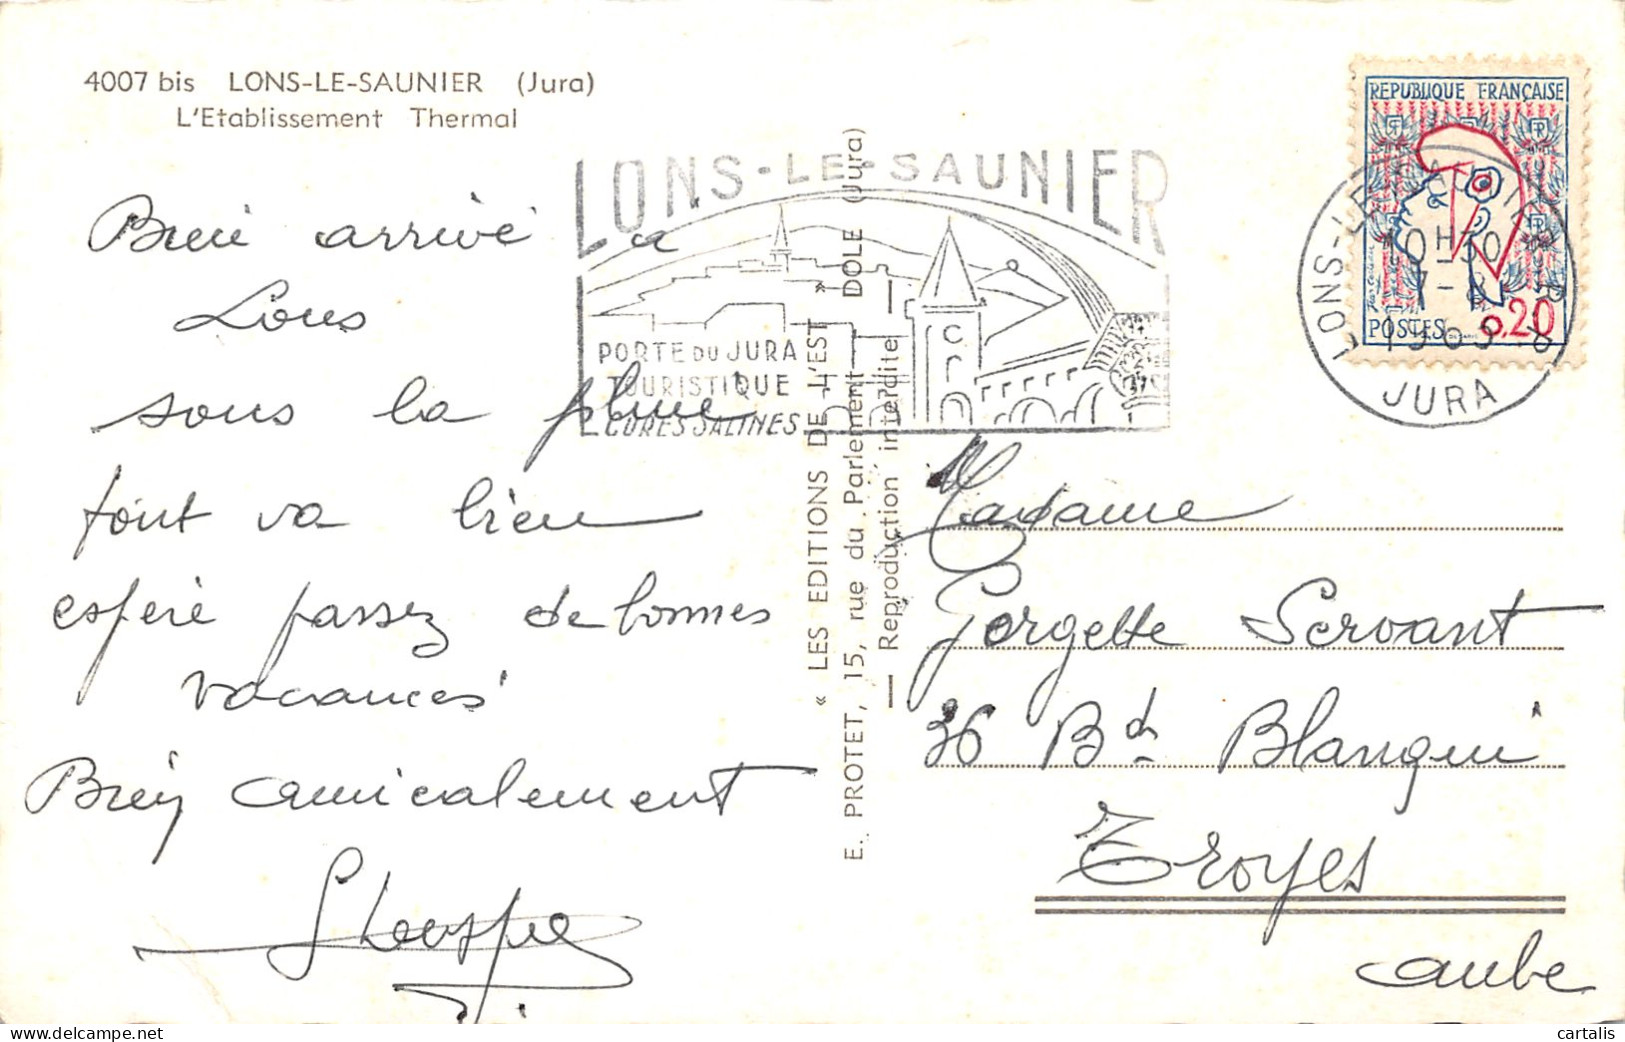 4007 bis LONS-LE-SAUNIER (Jura)
L'Etablissement Thermal
Bien arrivé a
Lons
sous la pluie
tout va bien
espère passez de bonnes
vacances
Bien amicalement
LONS-LE-SAUNIER
PORTE DU JURA
TOURISTIQUE
CURES SALINES
« LES EDITIONS DE L'EST »
E. PROTET, 15, rue du Parlement - DOLE (Jura)
— Reproduction interdite —
REPUBLIQUE FRANÇAISE
POSTES
0.20
LONS-LE-SAUNIER
10H30
JURA
Madame
Gorgette Servant
36 Bd Blanqui
Troyes
Aube
delcampe.net
cartalis